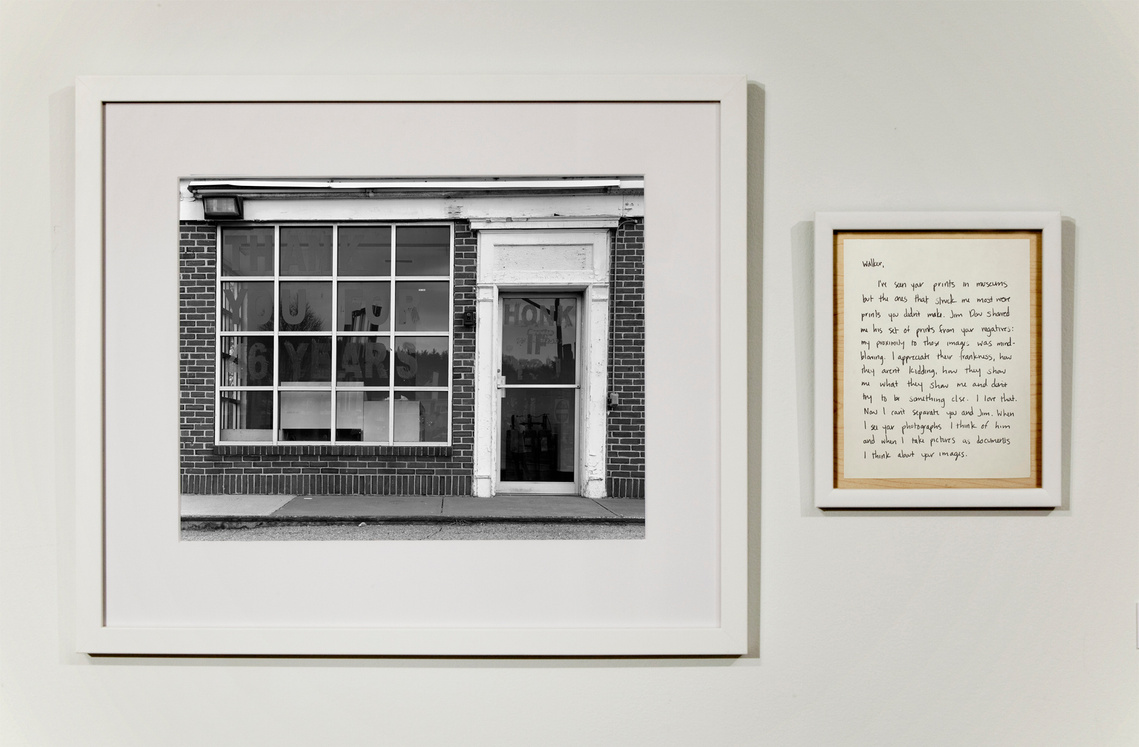 THANK
YOU FOR
6 YEARS
HONK
IF
Walker,
I've seen your prints in museums
but the ones that struck me most were
prints you didn't make. Jim Dow shared
me his set of prints from your negatives:
my proximity to those images was mind-
blowing. I appreciate their frankness, how
they aren't kidding, how they show
me what they show me and don't
try to be something else. I love that.
Now I can't separate you and Jim. When
I see your photographs I think of him
and when I take pictures as documents
I think about your images.